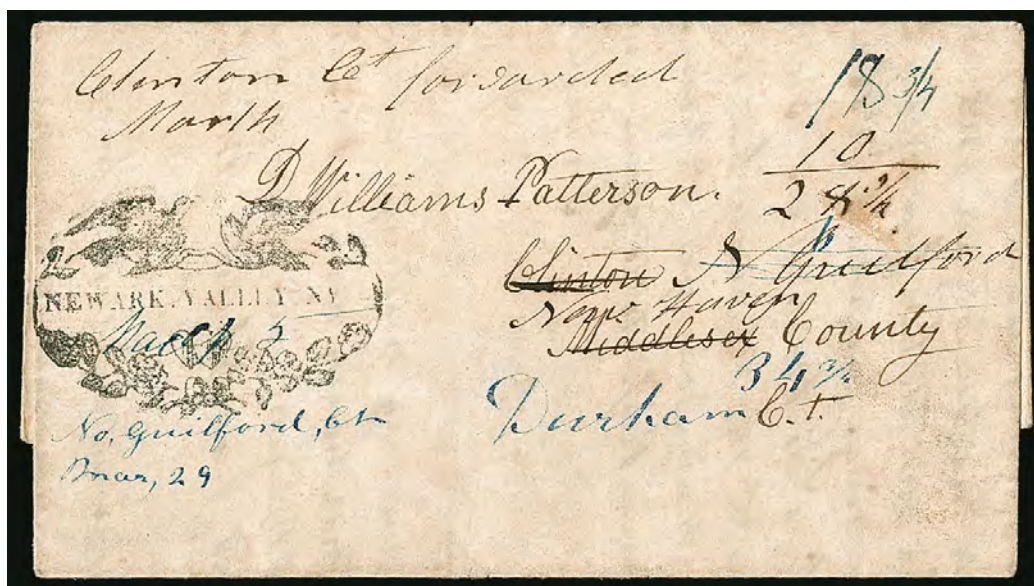 Clinton Ct forwarded
March
18 3/4
10
2
D Williams Patterson.
Clinton N Guilford
New Haven
Middlesex County
34 3/4
Durham C.T.
NEWARK. VALLEY. NY
March 5
No. Guilford, Ct
Mar, 29